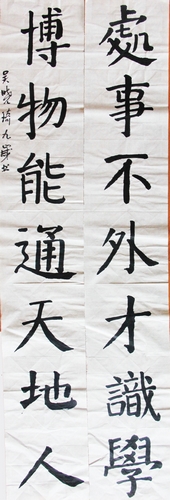 處事不外才識學
博物能通天地人
吴晓琦九岁书